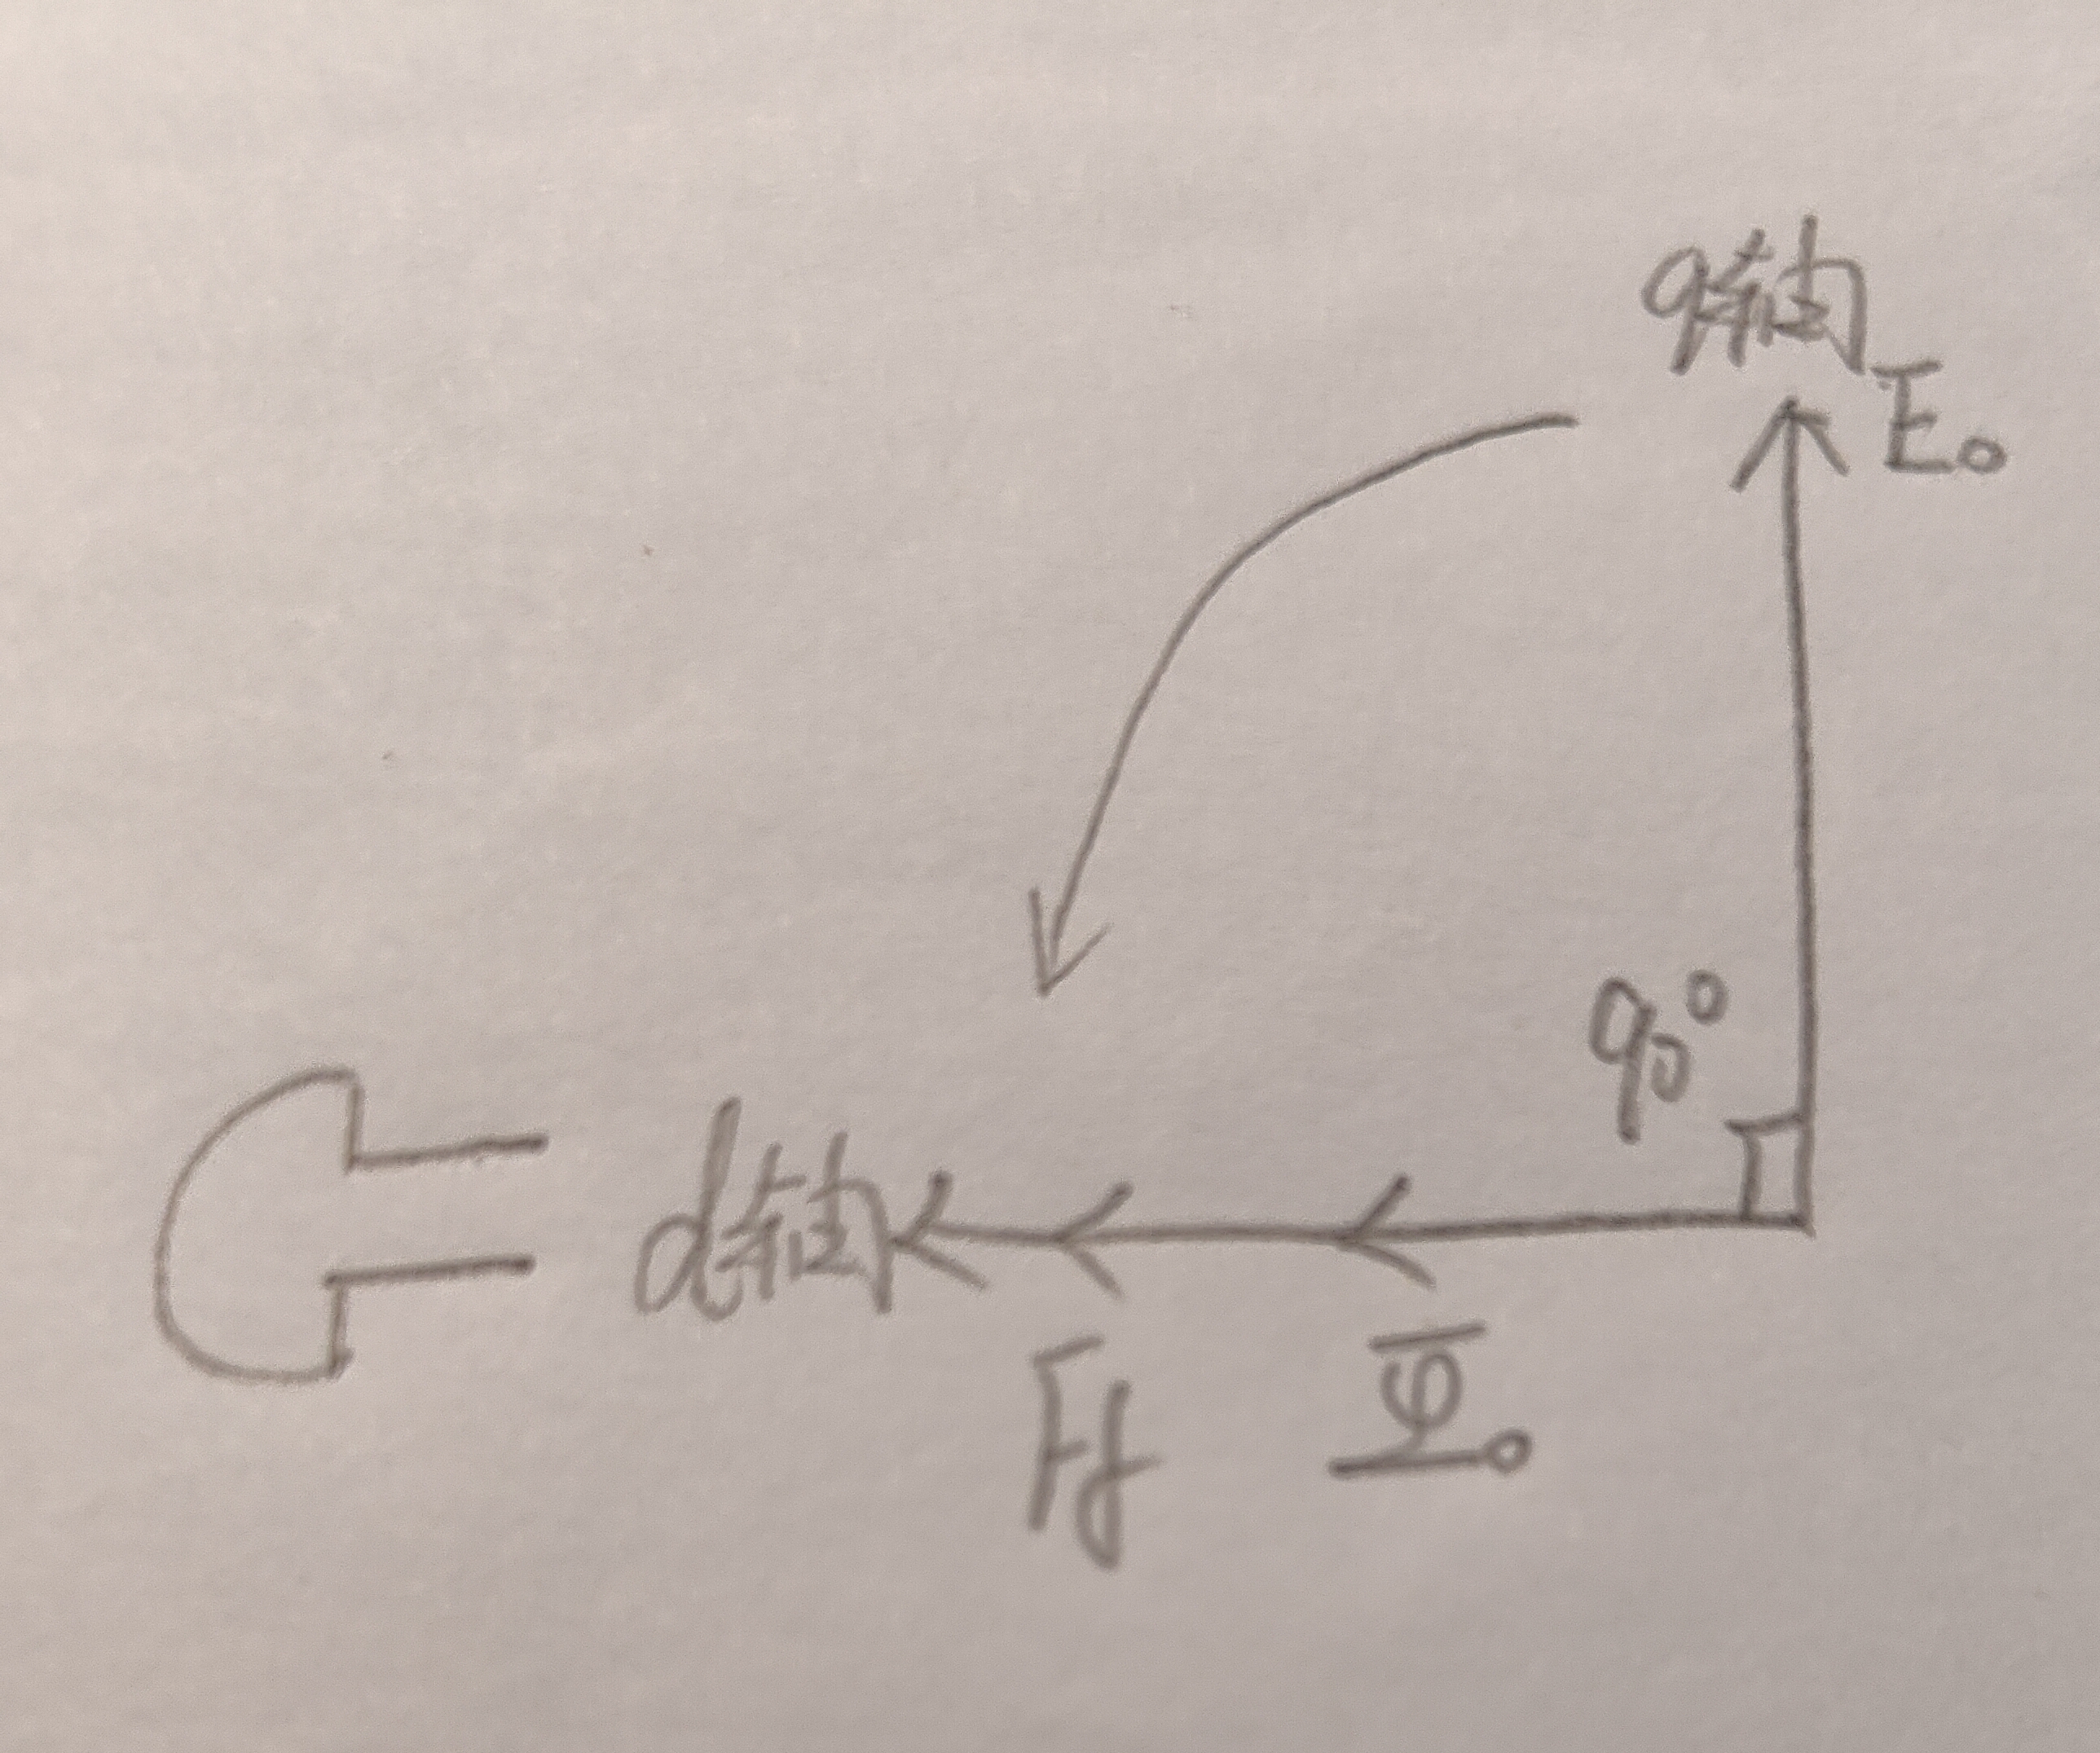 q轴
E₀
90°
d轴
Ff
Φ₀